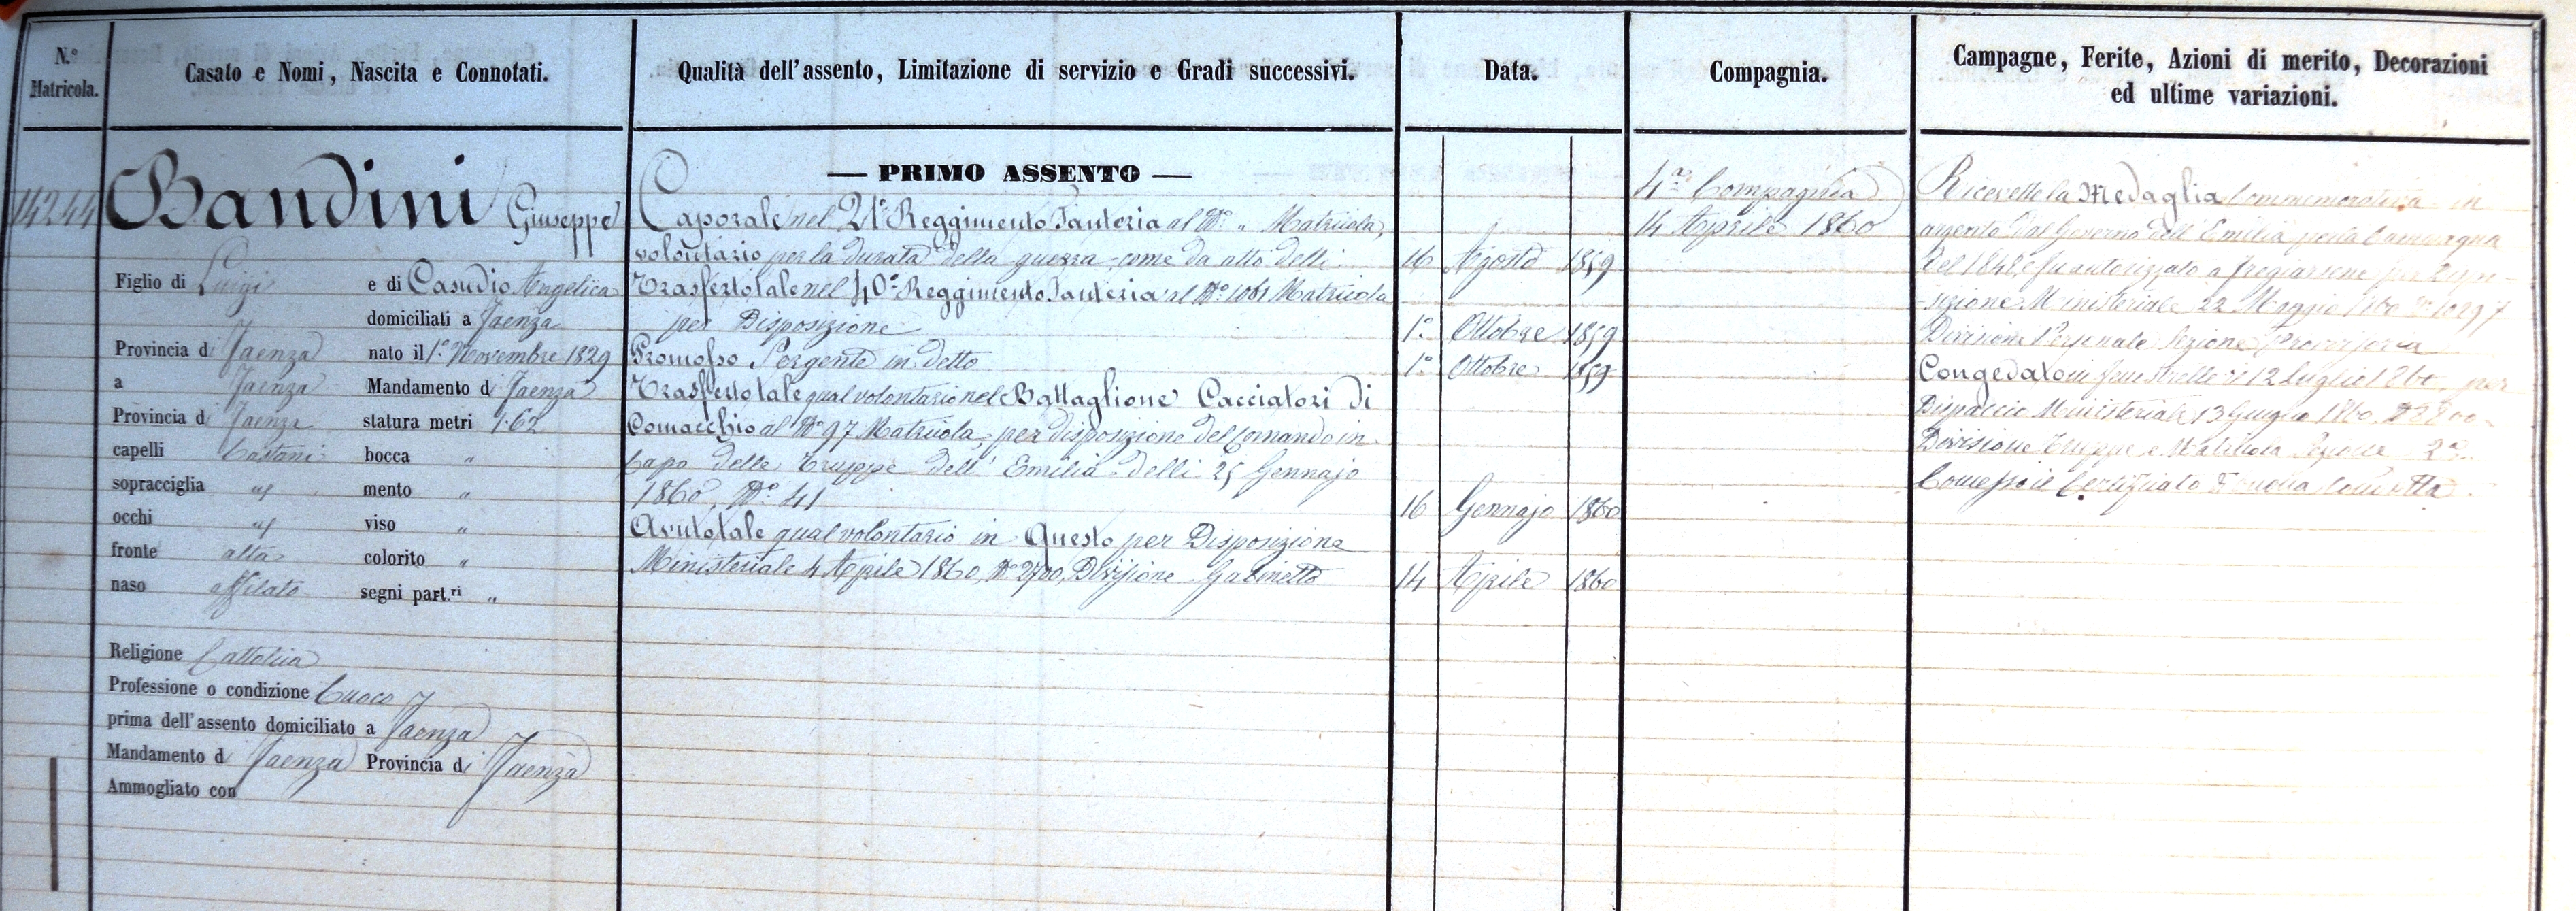 N.º Matricola.
Casato e Nomi, Nascita e Connotati.
Qualità dell'assento, Limitazione di servizio e Gradi successivi.
Data.
Compagnia.
Campagne, Ferite, Azioni di merito, Decorazioni
ed ultime variazioni.
14244
Bandini Giuseppe
Figlio di Luigi e di Casudio Angelica
domiciliati a Faenza
Provincia di Faenza nato il 1.º Novembre 1829
a Faenza Mandamento di Faenza
Provincia di Faenza statura metri 1.62
capelli Castani bocca "
sopracciglia " mento "
occhi " viso "
fronte alta colorito "
naso affilato segni part.ri "
Religione Cattolica
Professione o condizione Cuoco
prima dell'assento domiciliato a Faenza
Mandamento di Faenza Provincia di Faenza
Ammogliato con
— PRIMO ASSENTO —
Caporale nel 21º Reggimento Fanteria al Nº " Matricola,
volontario per la durata della guerra come da atto delli 16 Agosto 1859
Trasferto tale nel 40º Reggimento Fanteria al Nº 1061 Matricola
per Disposizione 1º Ottobre 1859
Promosso Sergente in detto 1º Ottobre 1859
Trasferto tale qual volontario nel Battaglione Cacciatori di
Comacchio al Nº 97 Matricola, per disposizione del Comando in
Capo delle Truppe dell' Emilia delli 25 Gennajo
1860, Nº 41 16 Gennajo 1860
Avuto tale qual volontario in Questo per Disposizione
Ministeriale 4 Aprile 1860, Nº 2700, Divisione Gabinetto 14 Aprile 1860
4ª Compagnia
14 Aprile 1860
Ricevette la Medaglia Commemorativa in
argento dal Governo dell' Emilia per la Campagna
del 1848, e fu autorizzato a fregiarsene per Dispo-
-sizione Ministeriale 22 Maggio 1860 Nº 10297
Divisione Personale Sezione
Congedato in Fenestrelle li 12 Luglio 1860, per
Dispaccio Ministeriale 13 Giugno 1860, Nº
Divisione Truppe e Matricola Sezione 2ª.
Concesso il Certificato di buona condotta.